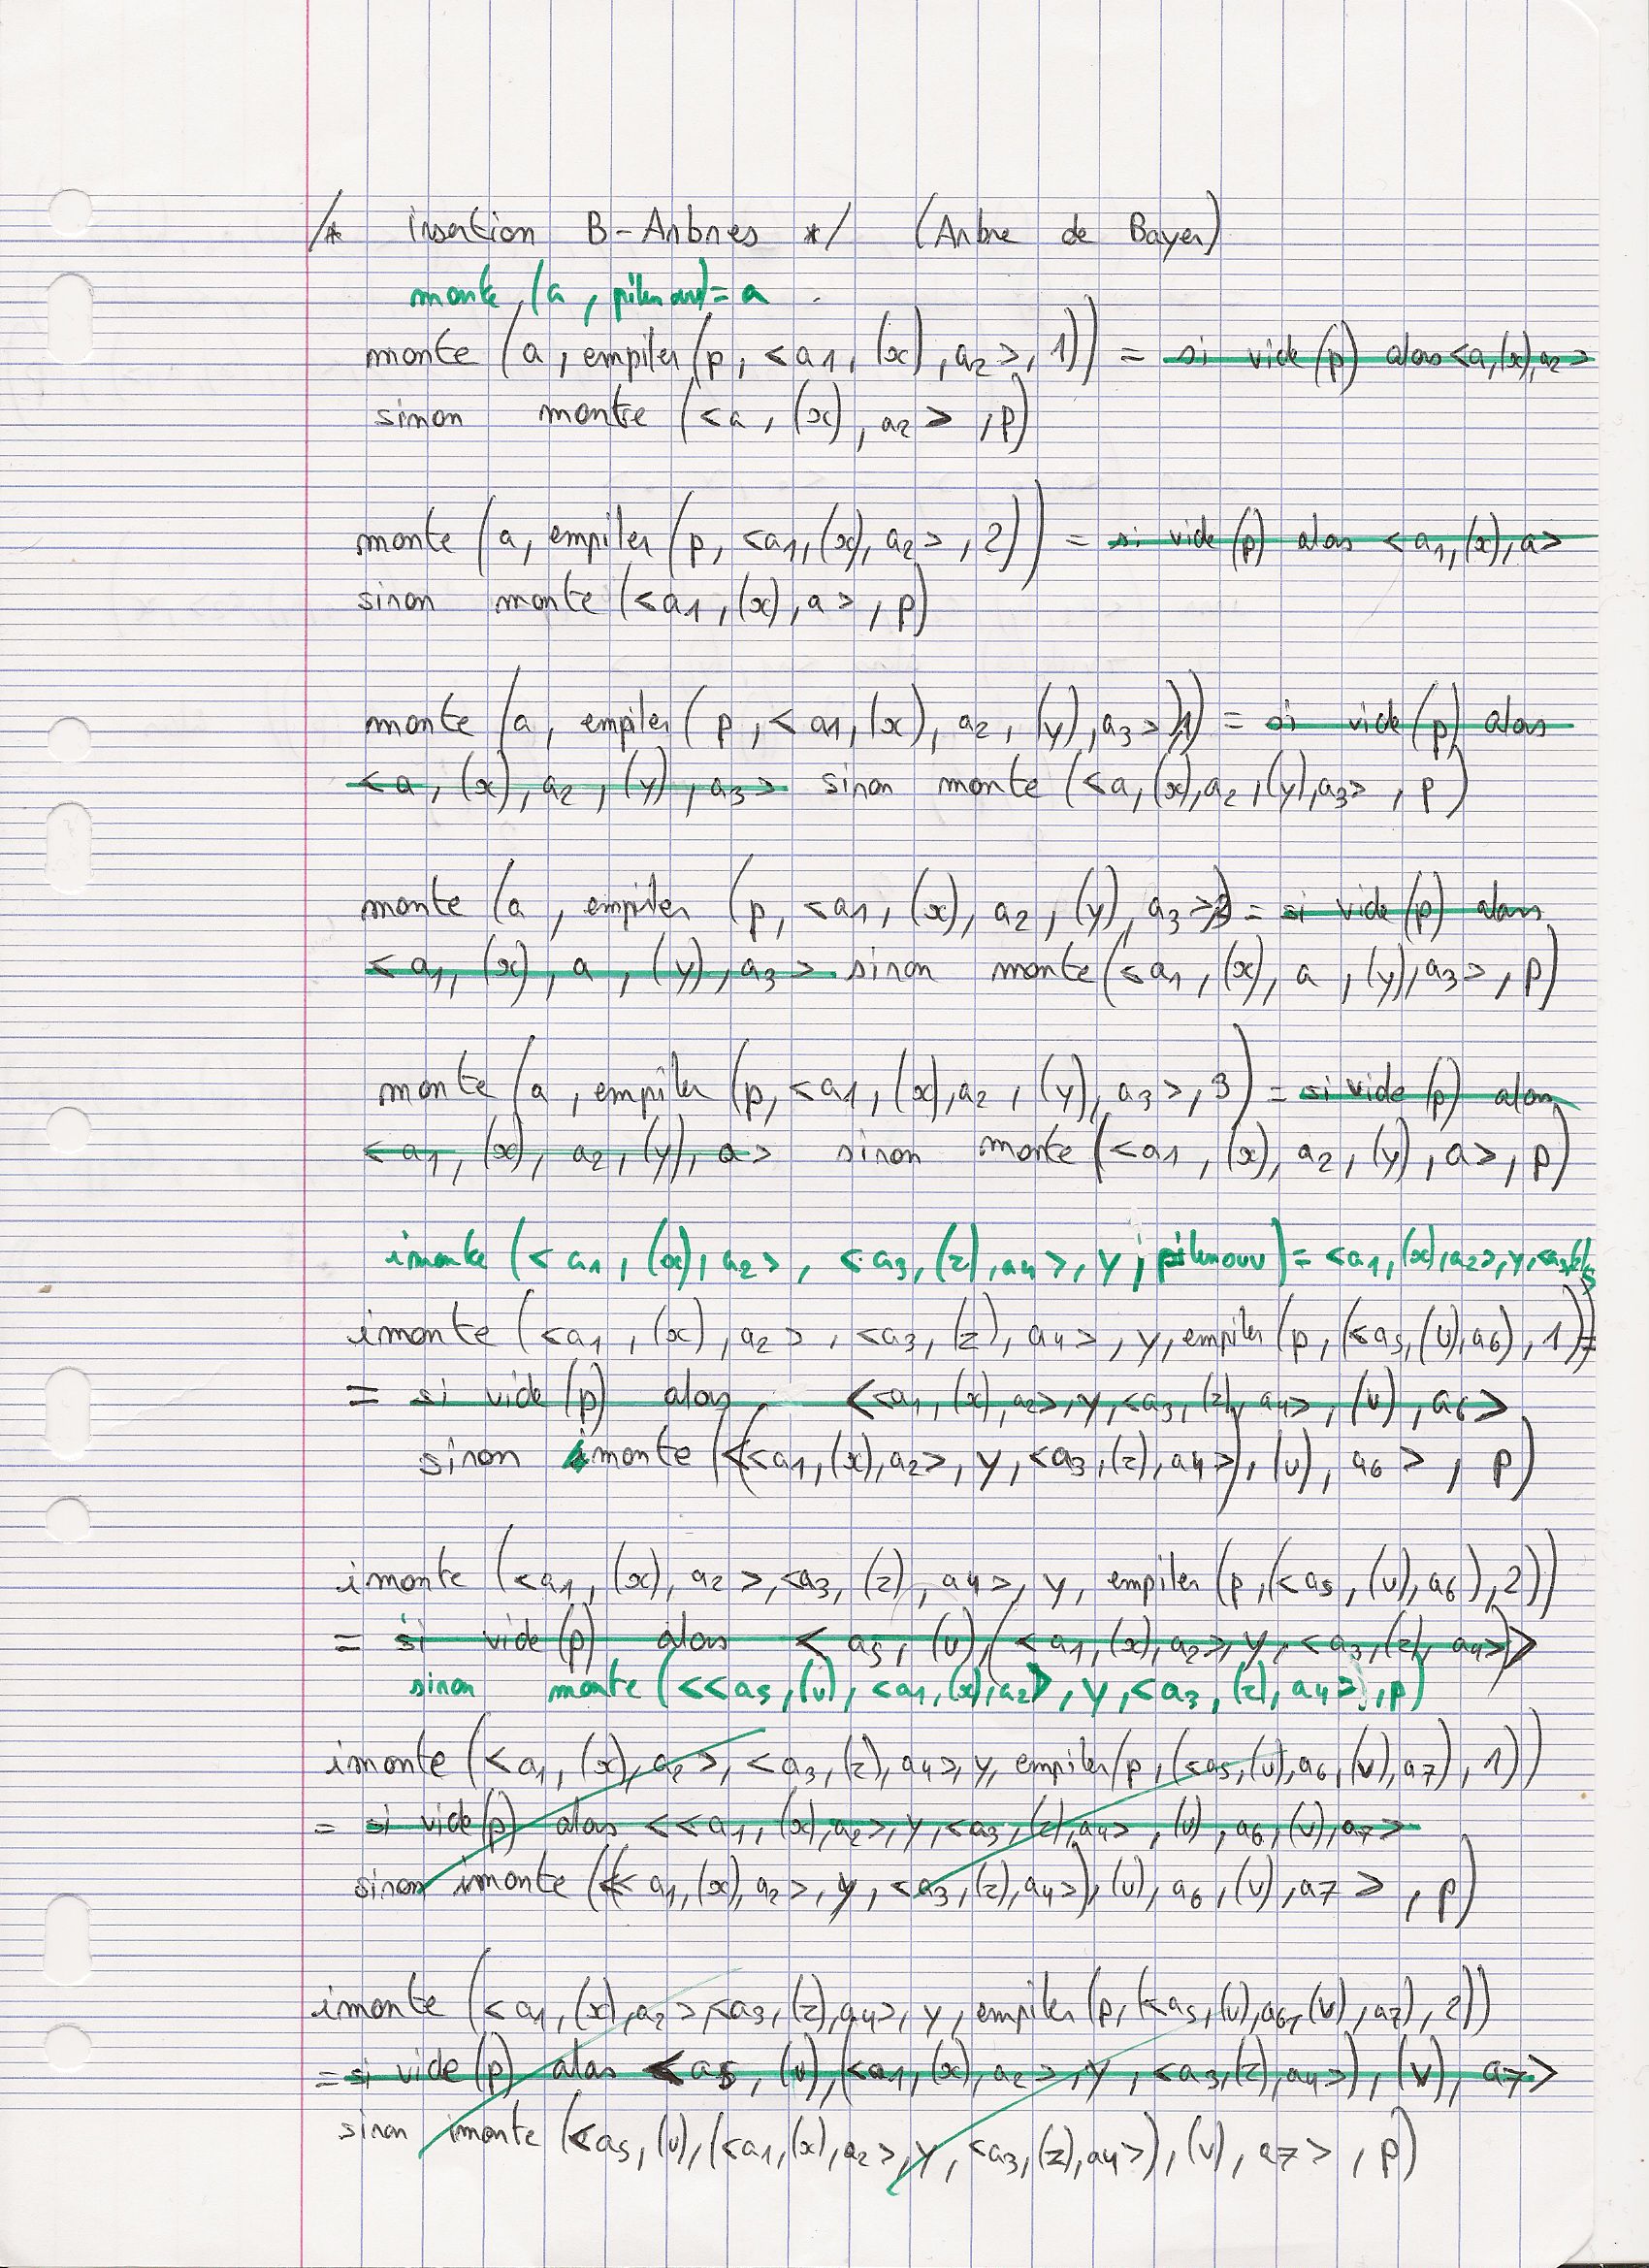 /* insertion B-Arbres */ (Arbre de Bayer)
monte (a, pilenouv) = a
monte (a, empiler (p, <a1, (x), a2>, 1)) = si vide (p) alors <a, (x), a2>
sinon monte (<a, (x), a2>, p)
monte (a, empiler (p, <a1, (x), a2>, 2)) = si vide (p) alors <a1, (x), a>
sinon monte (<a1, (x), a>, p)
monte (a, empiler (p, <a1, (x), a2, (y), a3>, 1)) = si vide (p) alors
<a, (x), a2, (y), a3> sinon monte (<a, (x), a2, (y), a3>, p)
monte (a, empiler (p, <a1, (x), a2, (y), a3>, 2)) = si vide (p) alors
<a1, (x), a, (y), a3> sinon monte (<a1, (x), a, (y), a3>, p)
monte (a, empiler (p, <a1, (x), a2, (y), a3>, 3) = si vide (p) alors
<a1, (x), a2, (y), a> sinon monte (<a1, (x), a2, (y), a>, p)
imonte (<a1, (x), a2>, <a3, (z), a4>, y, pilenouv) = <a1, (x), a2>, y, <a3, (z),
imonte (<a1, (x), a2>, <a3, (z), a4>, y, empiler (p, (<a5, (u), a6), 1)) =
= si vide (p) alors <<a1, (x), a2>, y, <a3, (z), a4>, (u), a6>
sinon monte (<(<a1, (x), a2>, y, <a3, (z), a4>), (u), a6>, p)
imonte (<a1, (x), a2>, <a3, (z), a4>, y, empiler (p, (<a5, (u), a6), 2))
= si vide (p) alors <a5, (u), (<a1, (x), a2>, y, <a3, (z), a4>)>
sinon monte (<<a5, (u), <a1, (x), a2>, y, <a3, (z), a4>, p)
imonte (<a1, (x), a2>, <a3, (z), a4>, y, empiler (p, (<a5, (u), a6, (v), a7), 1))
= si vide (p) alors <<a1, (x), a2>, y, <a3, (z), a4>, (u), a6, (v), a7>
sinon imonte ((<a1, (x), a2>, y, <a3, (z), a4>), (u), a6, (v), a7>, p)
imonte (<a1, (x), a2>, <a3, (z), a4>, y, empiler (p, (<a5, (u), a6, (v), a7), 2))
= si vide (p) alors <a5, (u), (<a1, (x), a2>, y, <a3, (z), a4>), (v), a7>
sinon imonte (<a5, (u), (<a1, (x), a2>, y, <a3, (z), a4>), (v), a7>, p)